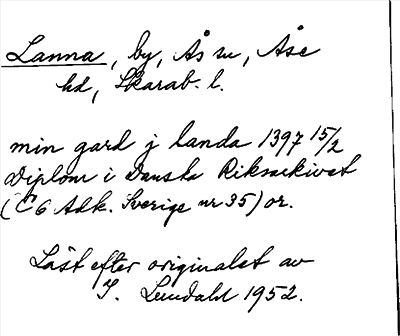 Lanna, by, Ås sn, Åse
hd, Skarab. l.
min gard j landa 1397 15/2
Diplom i Danska Riksarkivet
(C 6 Adk. Sverige nr 35) or.
Läst efter originalet av
I. Lundahl 1952.